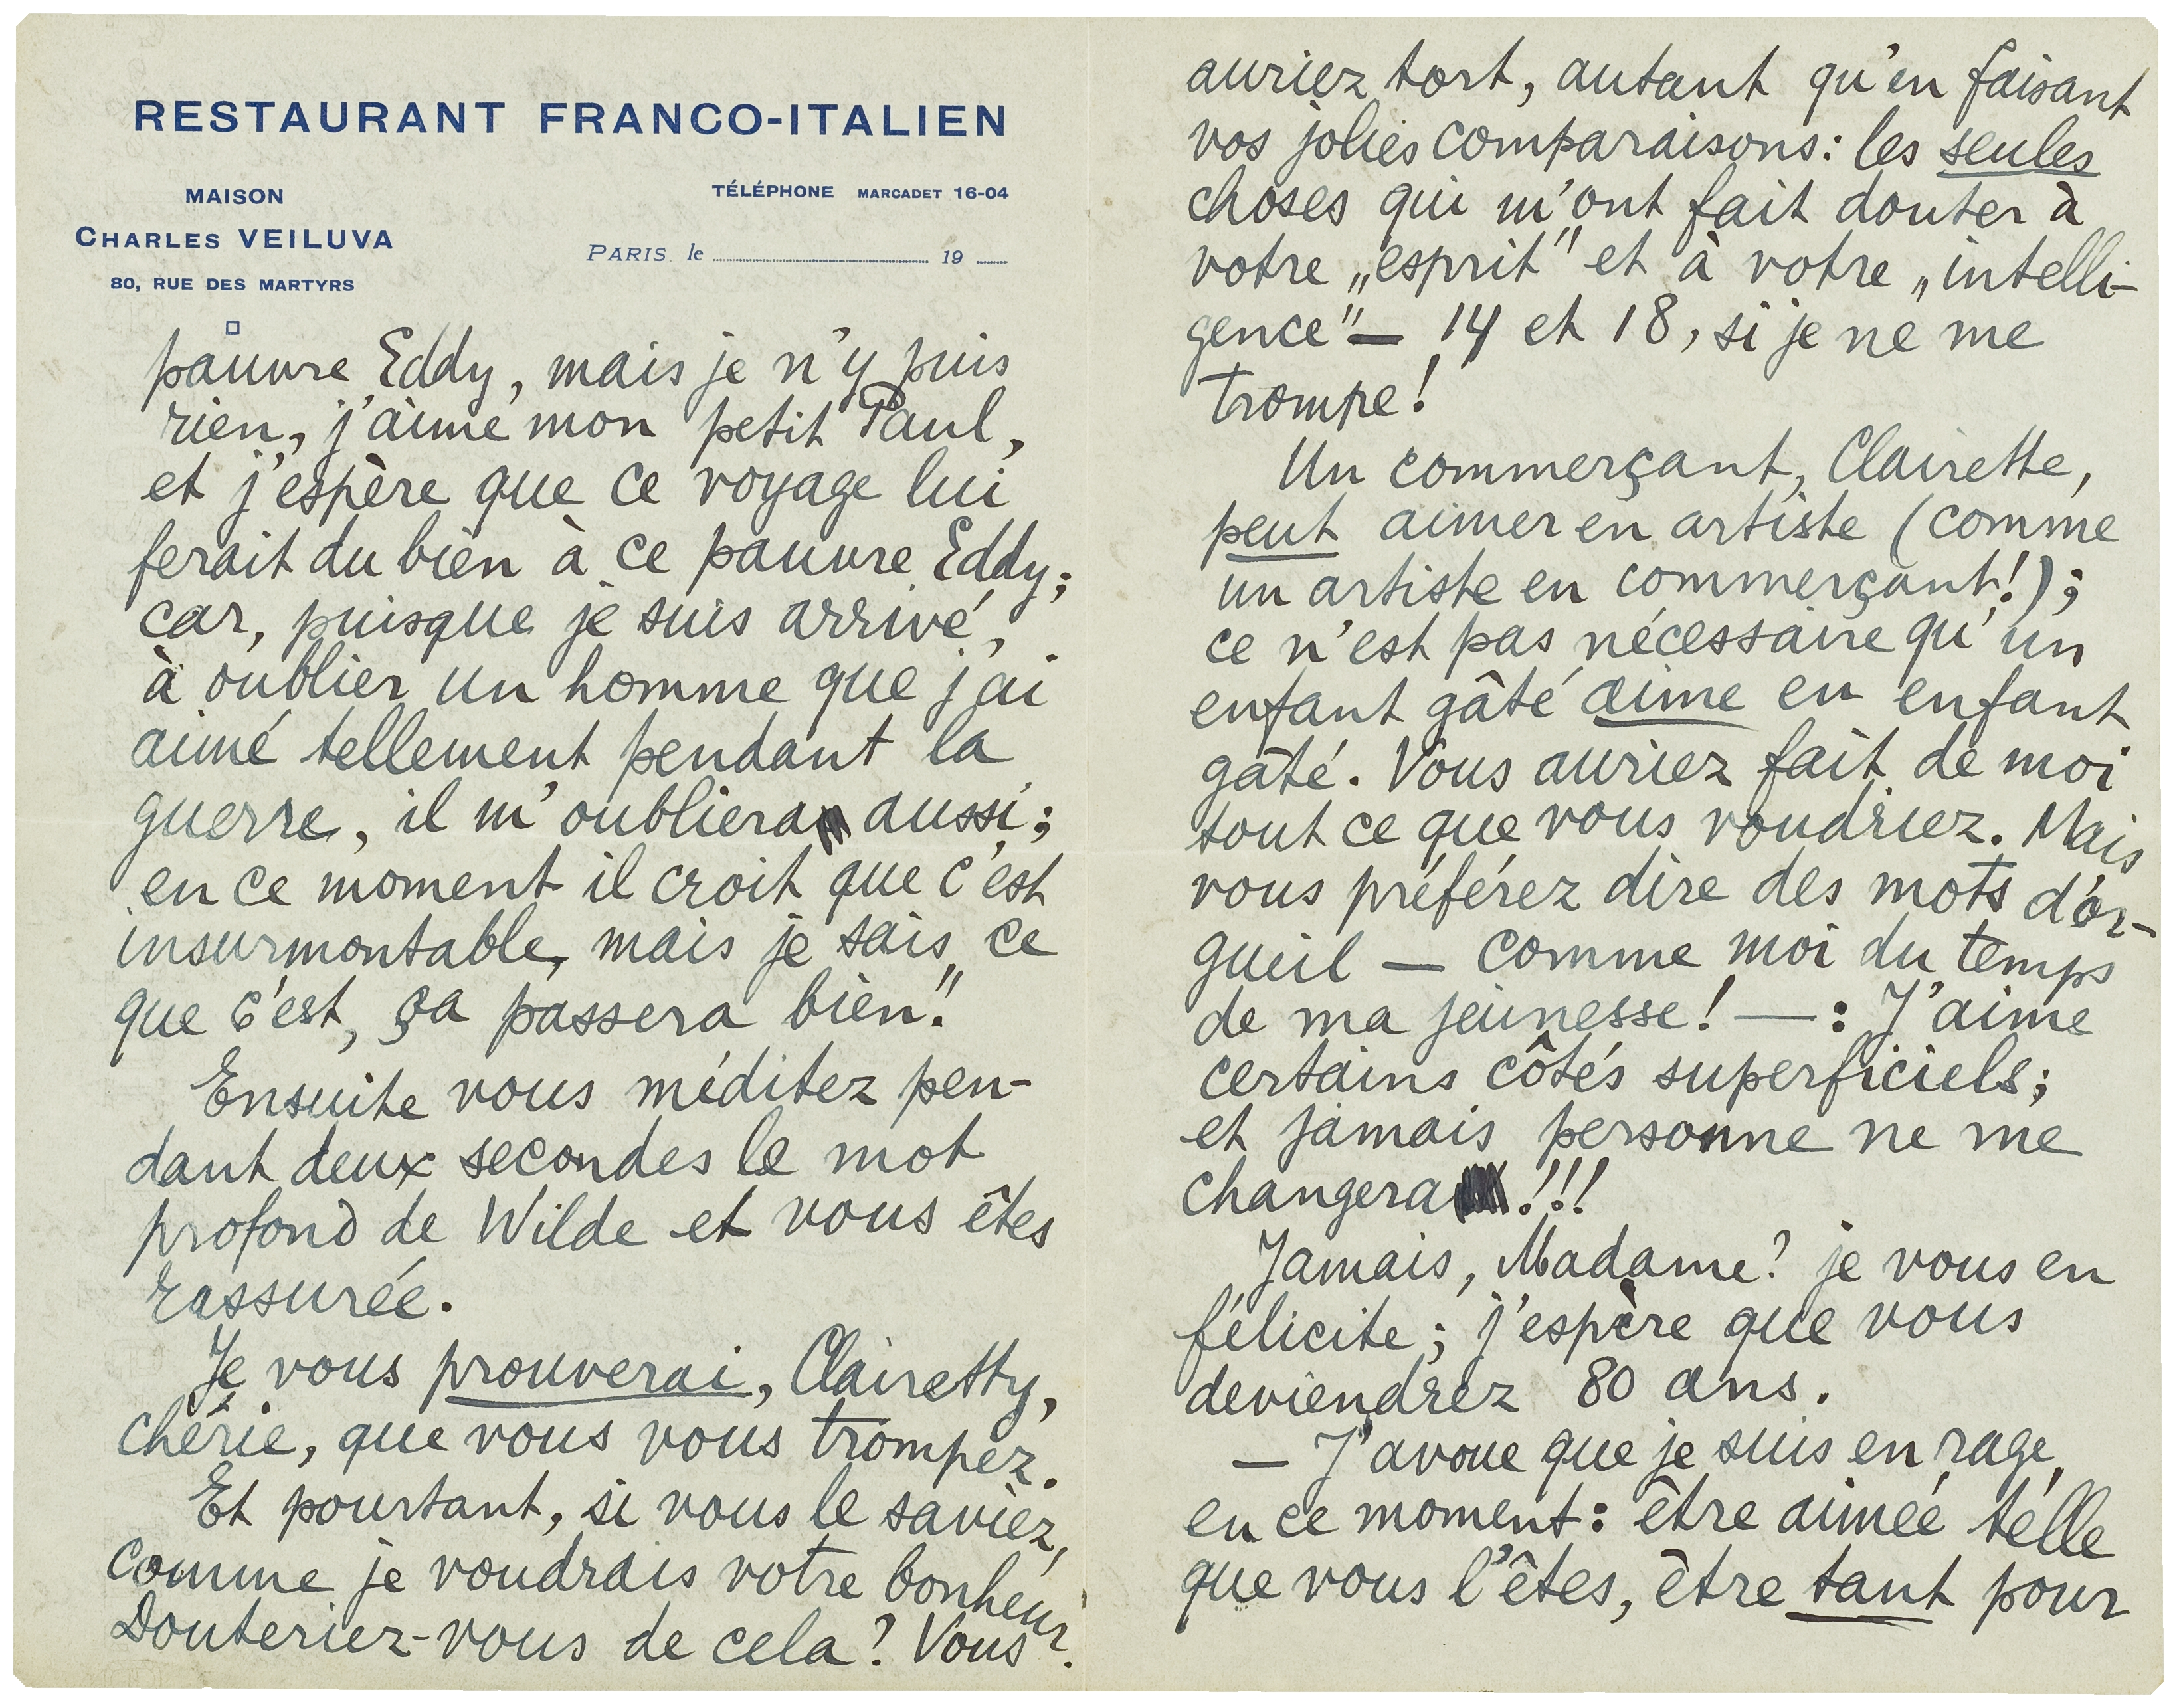 RESTAURANT FRANCO-ITALIEN
MAISON
CHARLES VEILUVA
80, RUE DES MARTYRS
TÉLÉPHONE MARCADET 16-04
PARIS. le 19
pauvre Eddy, mais je n'y puis
rien, j'aime mon petit Paul,
et j'espère que ce voyage lui
ferait du bien à ce pauvre Eddy;
car, puisque je suis arrivé,
à oublier un homme que j'ai
aimé tellement pendant la
guerre, il m'oubliera aussi;
en ce moment il croit que c'est
insurmontable, mais je sais ce
que c'est, ça passera bien".
Ensuite vous méditez pen-
dant deux secondes le mot
profond de Wilde et vous êtes
rassurée.
Je vous prouverai, Clairetty,
chérie, que vous vous trompez.
Et pourtant, si vous le saviez,
comme je voudrais votre bonheur.
Douteriez-vous de cela? Vous
auriez tort, autant qu'en faisant
vos jolies comparaisons: les seules
choses qui m'ont fait douter à
votre „esprit" et à votre „intelli-
gence" — 14 et 18, si je ne me
trompe!
Un commerçant, Clairette,
peut aimer en artiste (comme
un artiste en commerçant!);
ce n'est pas nécessaire qu'un
enfant gâté aime en enfant
gâté. Vous auriez fait de moi
tout ce que vous voudriez. Mais
vous préférez dire des mots d'or-
gueil — comme moi du temps
de ma jeunesse! —: J'aime
certains côtés superficiels;
et jamais personne ne me
changera!!!
Jamais, Madame? je vous en
félicite; j'espère que vous
deviendrez 80 ans.
— J'avoue que je suis en rage,
en ce moment: être aimée telle
que vous l'êtes, être tant pour